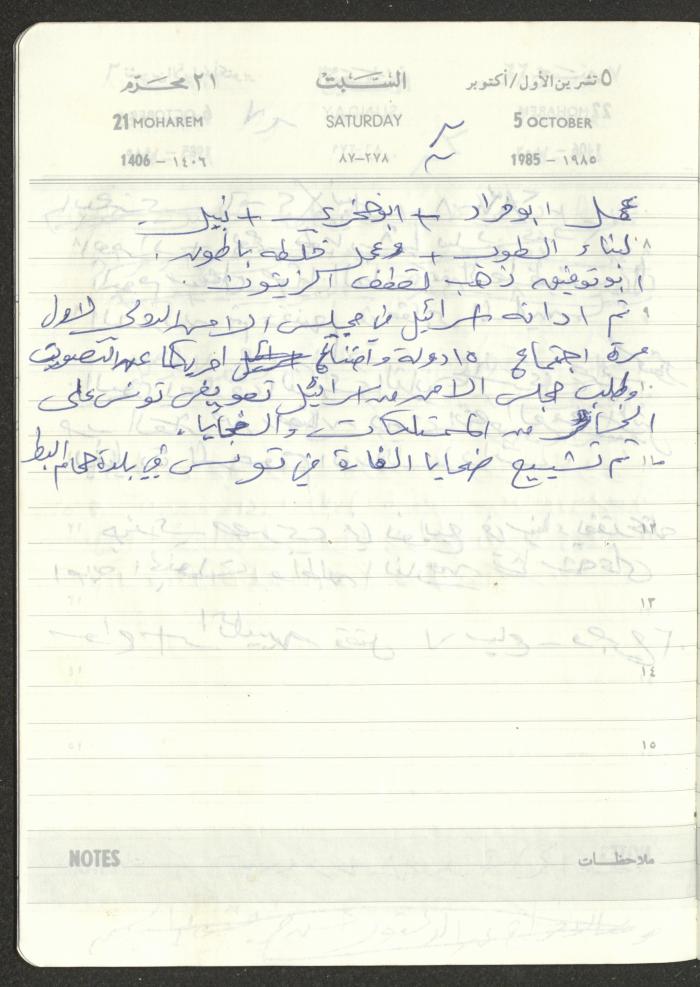 ٥ تشرين الأول/أكتوبر السَّبت ٢١ محرَّم
21 MOHAREM SATURDAY 5 OCTOBER
1406 - ١٤٠٦ ٨٧-٢٧٨ 1985 - ١٩٨٥
عمل ابو مراد + ابو فخري + نبيل
٨ لبناء الطوب + وعمل خلطه باطون .
ابو توفيق ذهب لقطف الزيتون .
٩ تم ادانه اسرائيل في مجلس الامن الدولي لاول
مرة اجتماع ١٥ دولة وامتناع امريكا عن التصويت
١٠ وطلب مجلس الامن من اسرائيل تعويض تونس على
الخسائر من الممتلكات والضحايا .
١١ تم تشييع ضحايا الغارة في تونس في بلدة حمام الشط
١٢
١٣
١٤
١٥
NOTES ملاحظات